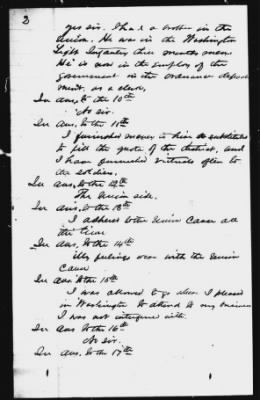 2
yes sir. I had a brother in the
Union. He was in the Washington
Light Infantry three months men.
He is now in the employ of the
Government in the ordnance depart
ment, as a clerk,
In ans. to the 10th
No sir.
In Ans. to the 11th
I furnished money to him to substitutes
to fill the quota of the district, and
I have furnished victuals often to
the soldiers.
In ans. to the 12th
The Union side.
In ans. to the 13th
I adhered to the Union Cause all
the time
In ans. to the 14th
My feelings were with the Union
Cause
In Ans to the 15th
I was allowed to go where I pleased
in Washington to attend to my business
I was not interfered with.
In Ans to the 16th
No sir.
In Ans. to the 17th